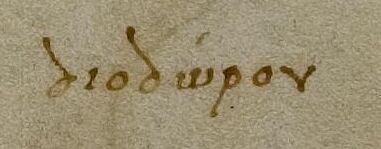 διοδώρον